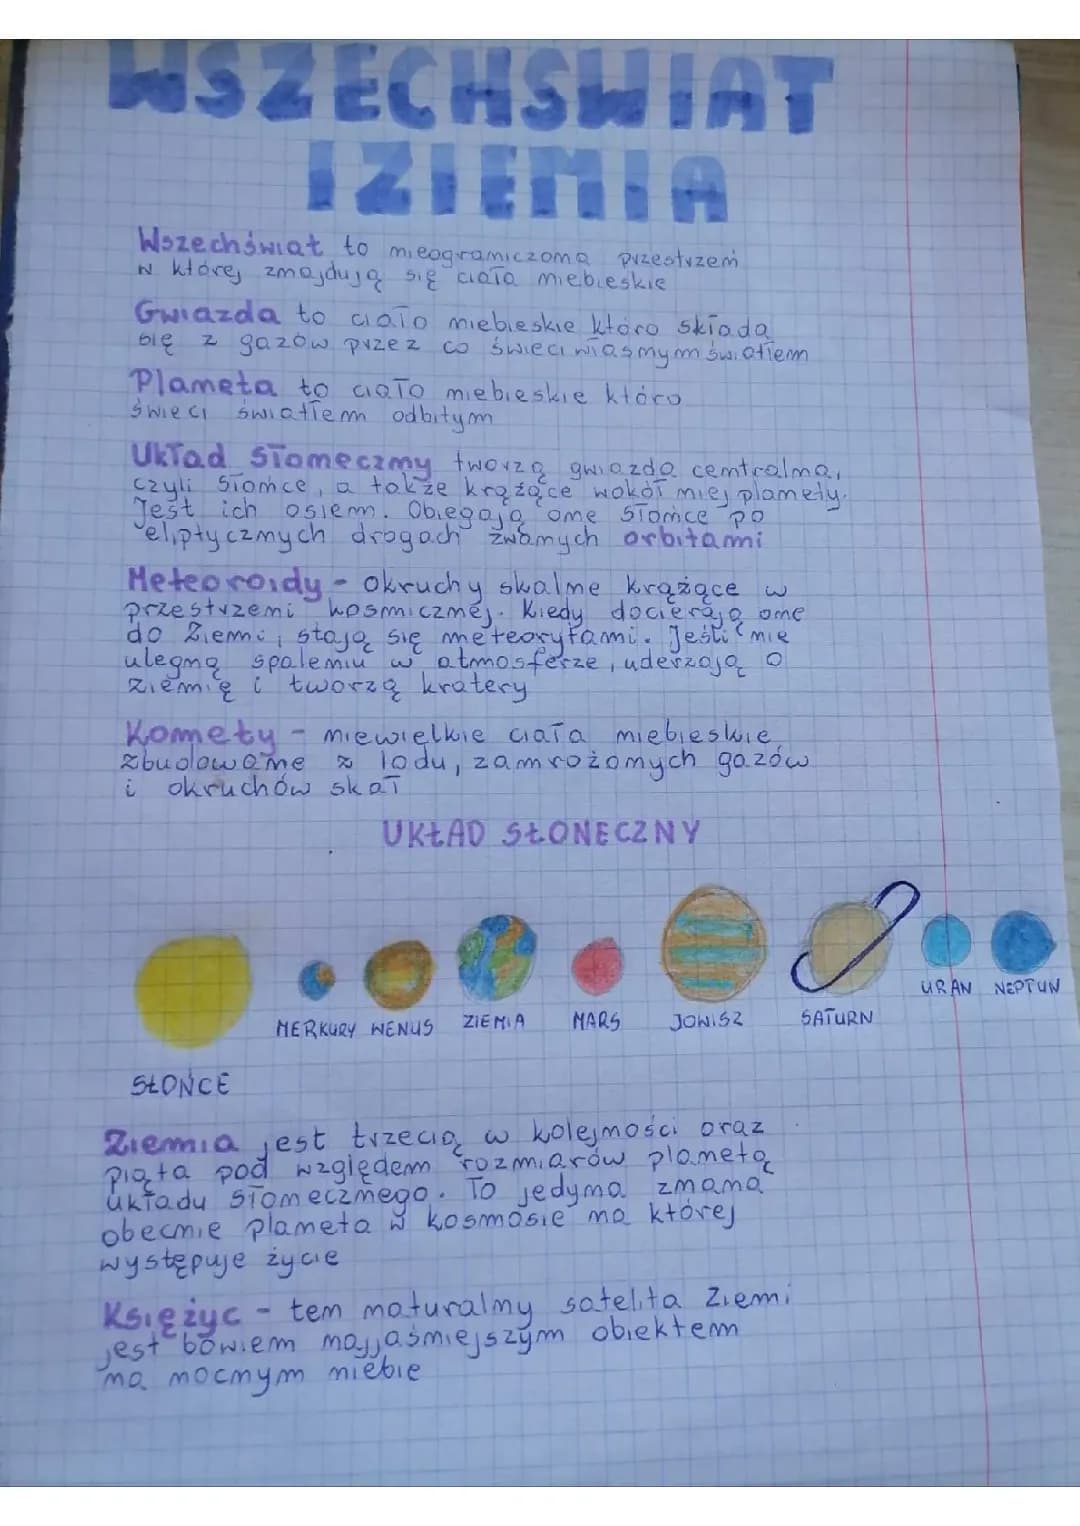 WSZECHŚWIAT
I ZIEMIA
Wszechświat to nieograniczona przestrzeń
w której znajdują się ciała niebieskie
Gwiazda to ciało niebieskie które składa
się z gazów przez co świeci własnym światłem
Planeta to ciało niebieskie które
świeci światłem odbitym
Układ Słoneczny tworzą gwiazda centralna,
czyli Słońce, a także krążące wokół niej planety.
Jest ich osiem. Obiegają one Słońce po
eliptycznych drogach zwanych orbitami
Meteoroidy - okruchy skalne krążące w
przestrzeni kosmicznej. Kiedy docierają one
do Ziemi, stają się meteorytami. Jeśli nie
ulegną spaleniu w atmosferze, uderzają o
Ziemię i tworzą kratery
Komety - niewielkie ciała niebieskie
zbudowane z lodu, zamrożonych gazów
i okruchów skał
UKŁAD SŁONECZNY
SŁOŃCE
MERKURY WENUS ZIEMIA MARS JOWISZ SATURN URAN NEPTUN
Ziemia jest trzecią w kolejności oraz
piątą pod względem rozmiarów planetą
układu Słonecznego. To jedyna znana
obecnie planeta w kosmosie na której
występuje życie
Księżyc - ten naturalny satelita Ziemi
jest bowiem najjaśniejszym obiektem
na nocnym niebie